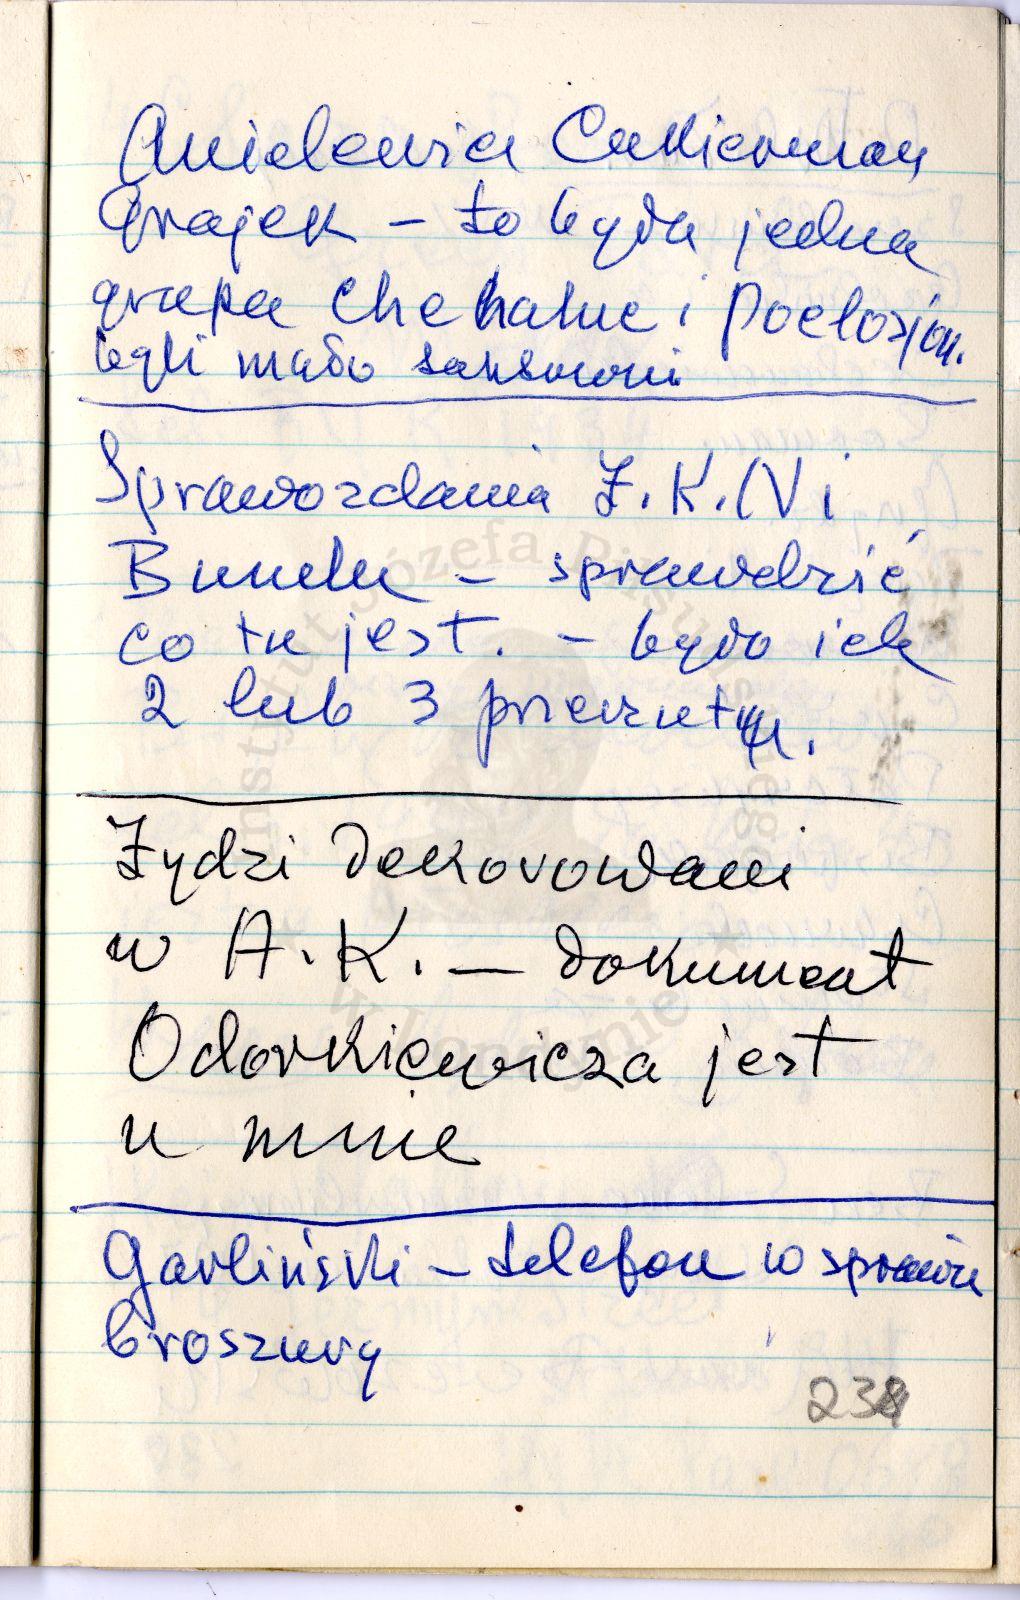 Anielewicz Cukierman
Grajek – to była jedna
grupa Chehaluc i Poelosjon.
byli mało
Sprawozdania Ż.K.N i
Bundu – sprawdzić
co tu jest. – było ich
2 lub 3
Żydzi dekorowani
w A.K. – dokument
Odorkiewicza jest
u mnie
Garliński – telefon w sprawie
broszury
Instytut Józefa Piłsudskiego
w Londynie